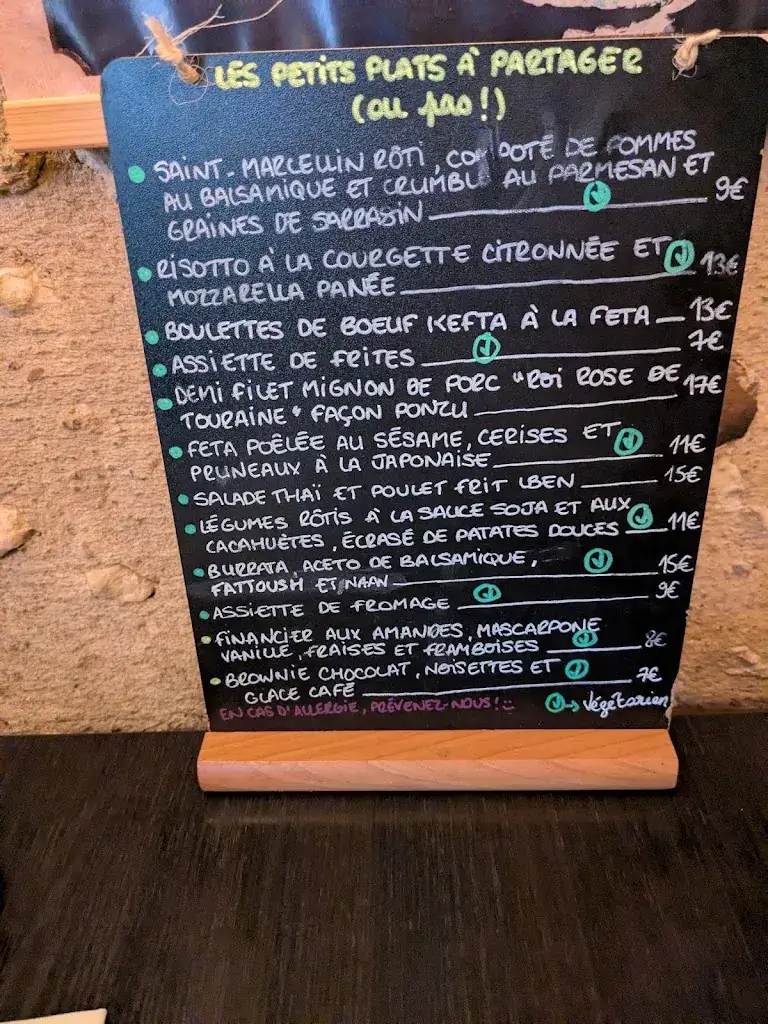 LES PETITS PLATS À PARTAGER
(ou pas!)
SAINT-MARCELLIN RÔTI, COMPOTÉ DE POMMES
AU BALSAMIQUE ET CRUMBLE AU PARMESAN ET
GRAINES DE SARRASIN 9€
RISOTTO À LA COURGETTE CITRONNÉE ET
MOZZARELLA PANÉE 13€
BOULETTES DE BOEUF KEFTA À LA FETA 13€
ASSIETTE DE FRITES 7€
DEMI FILET MIGNON DE PORC "ROI ROSE DE
TOURAINE" FAÇON PONZU 17€
FETA POÊLÉE AU SÉSAME, CERISES ET
PRUNEAUX À LA JAPONAISE 11€
SALADE THAÏ ET POULET FRIT LBEN 15€
LÉGUMES RÔTIS À LA SAUCE SOJA ET AUX
CACAHUÈTES, ÉCRASÉ DE PATATES DOUCES 11€
BURRATA, ACETO DE BALSAMIQUE,
FATTOUSH ET NAAN 15€
ASSIETTE DE FROMAGE 9€
FINANCIER AUX AMANDES, MASCARPONE
VANILLE, FRAISES ET FRAMBOISES 8€
BROWNIE CHOCOLAT, NOISETTES ET
GLACE CAFÉ 7€
EN CAS D'ALLERGIE, PRÉVENEZ-NOUS! → végétarien